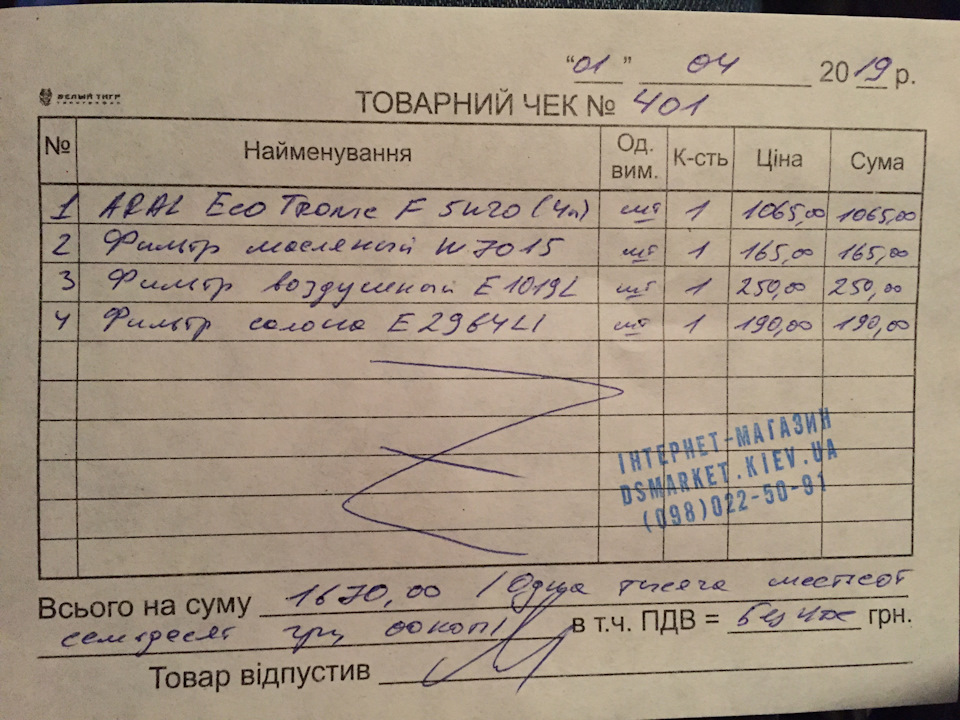 "01" 04 2019 р.
БЕЛЫЙ ТИГР
ТОВАРНИЙ ЧЕК № 401
№ Найменування Од. вим. К-сть Ціна Сума
1 ARAL EcoTronic F 5W20 (4л) шт 1 1065,00 1065,00
2 Фильтр масляный W7015 шт 1 165,00 165,00
3 Фильтр воздушный E1019L шт 1 250,00 250,00
4 Фильтр салона E2964LI шт 1 190,00 190,00
ІНТЕРНЕТ-МАГАЗИН
DSMARKET.KIEV.UA
(098)022-50-91
Всього на суму 1670,00 / Одна тысяча шестьсот
семьдесят грн 00 коп/ в т.ч. ПДВ = грн.
Товар відпустив